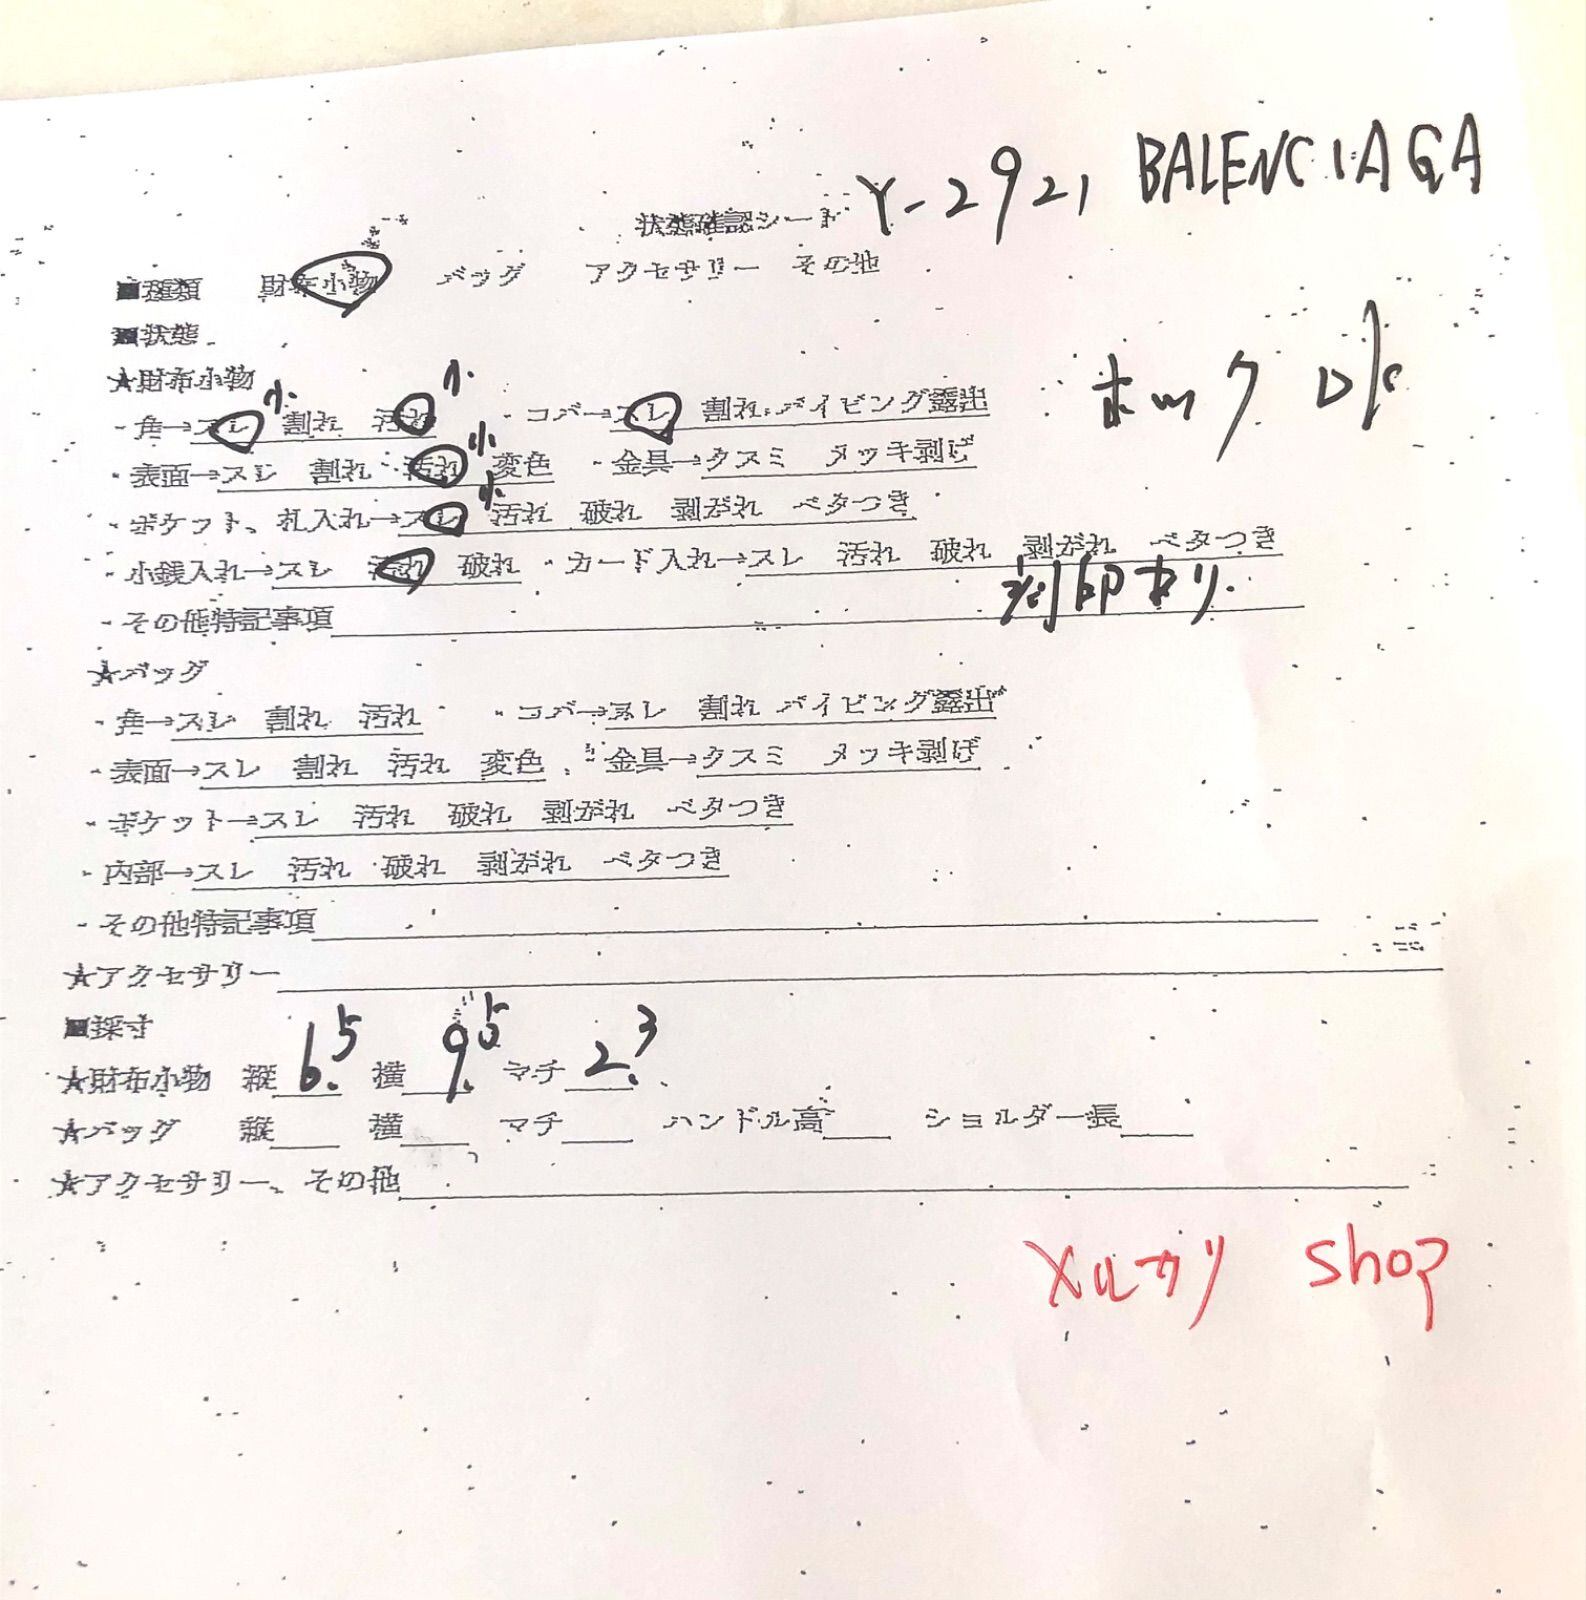 Y-2921 BALENCIAGA
状態確認シート
■種類 財布小物 バッグ アクセサリー その他
■状態
★財布小物
小 小
・角→スレ 割れ 汚れ ・コバ→スレ 割れ パイピング露出
ホック
小
・表面→スレ 割れ 汚れ 変色 ・金具→クスミ メッキ剥げ
小
・ポケット、札入れ→スレ 汚れ 破れ 剥がれ ベタつき
・小銭入れ→スレ 汚れ 破れ ・カード入れ→スレ 汚れ 破れ 剥がれ ベタつき
・その他特記事項 刻印あり.
★バッグ
・角→スレ 割れ 汚れ ・コバ→スレ 割れ パイピング露出
・表面→スレ 割れ 汚れ 変色 ・金具→クスミ メッキ剥げ
・ポケット→スレ 汚れ 破れ 剥がれ ベタつき
・内部→スレ 汚れ 破れ 剥がれ ベタつき
・その他特記事項
★アクセサリー
■採寸
★財布小物 縦 6.5 横 9.5 マチ 2.3
★バッグ 縦 横 マチ ハンドル高 ショルダー長
★アクセサリー、その他
メルカリ shop